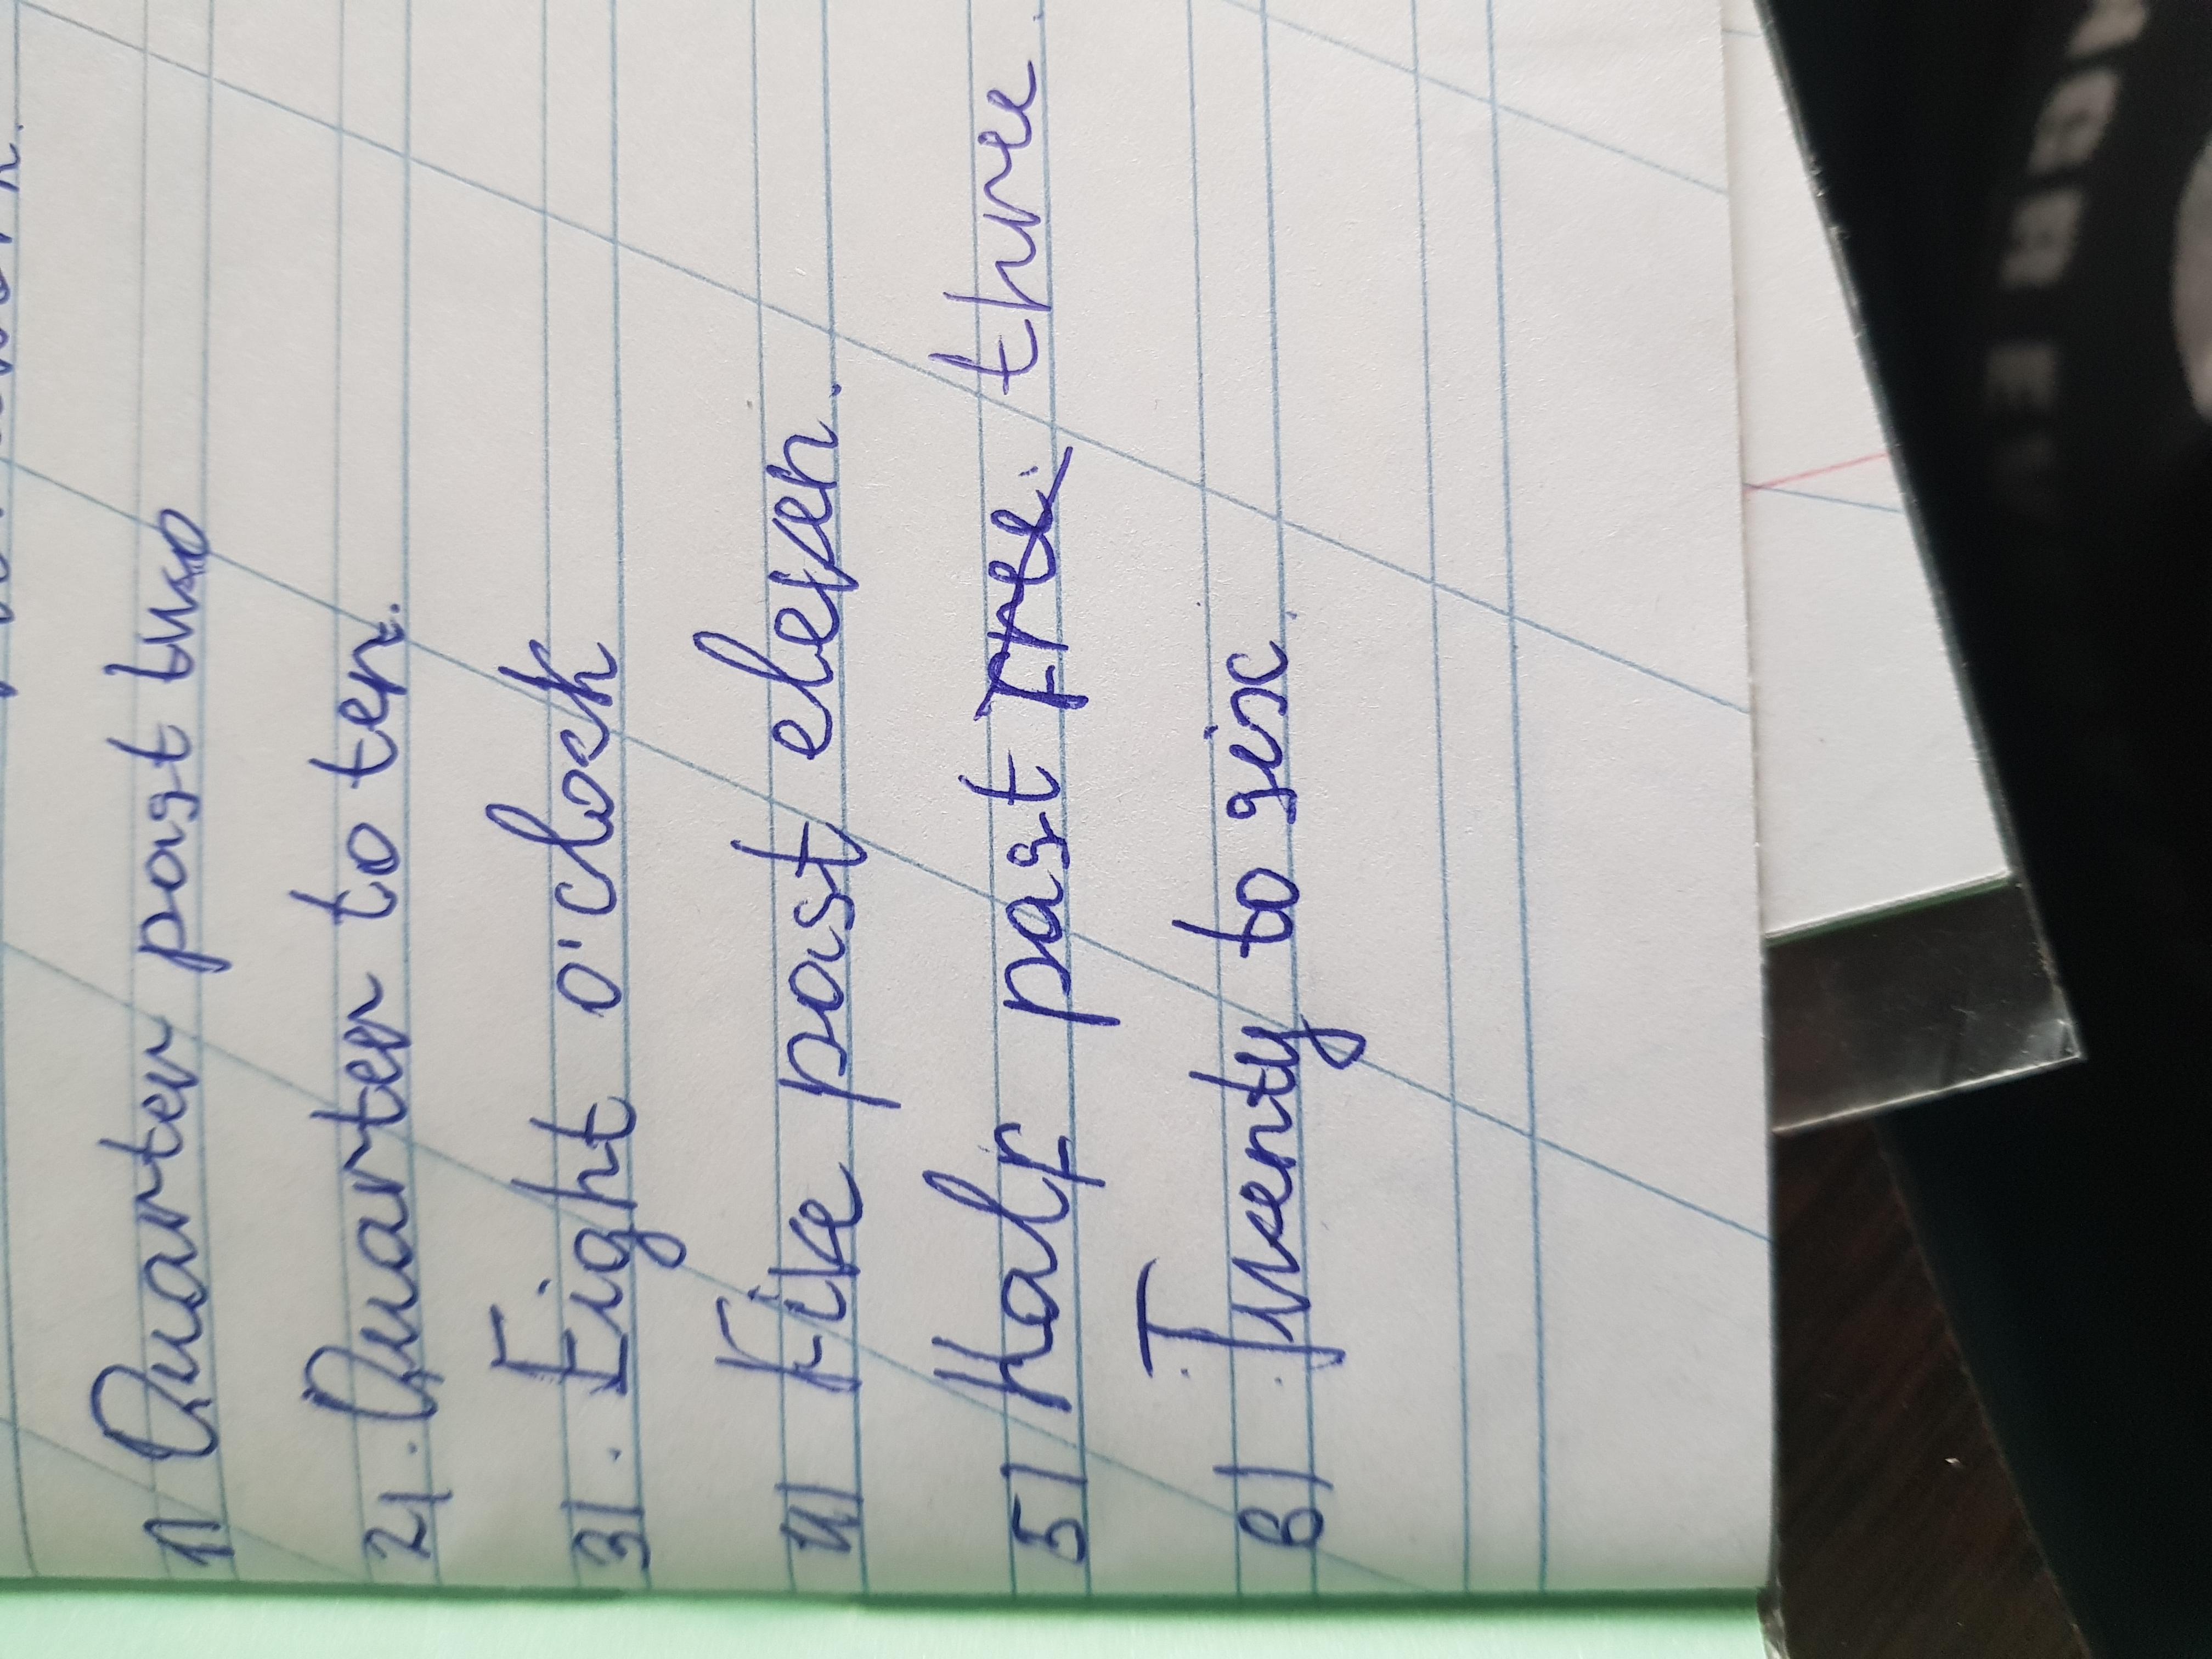 1) Quarter past two
2). Quarter to ten.
3). Eight o'clock
4) Five past eleven.
5) Half past free. three
6) Twenty to six.